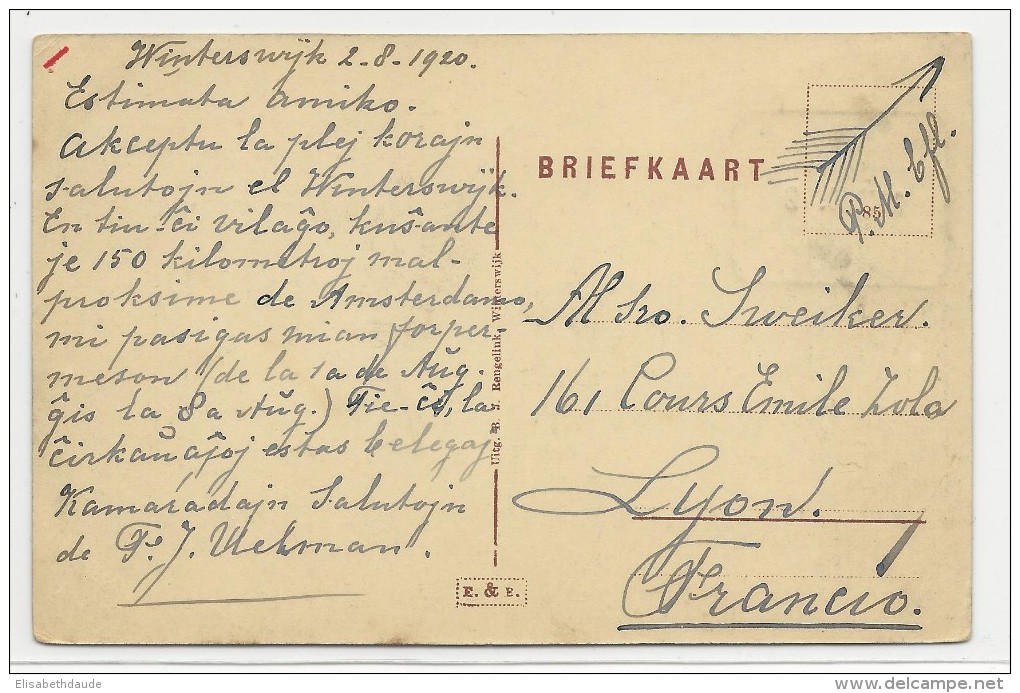 Winterswijk 2-8-1920.
Estimata amiko.
Akceptu la plej korajn
salutojn el Winterswijk.
En tiu-ĉi vilaĝo, kuŝante
je 150 kilometroj mal-
proksime de Amsterdamo,
mi pasigas mian forper-
meson (de la 1a de Aŭg.
ĝis la 8a Aŭg.) Tie-ĉi, la
ĉirkaŭaĵoj estas belegaj
Kamaradajn Salutojn
de F. J.
BRIEFKAART
85
P. M.
Uitg. B. J. Rengelink, Winterswijk
E. & E.
Msro. Sweiker.
161 Cours Emile Zola
Lyon.
Francio.
Elisabethdaude
delcampe.net